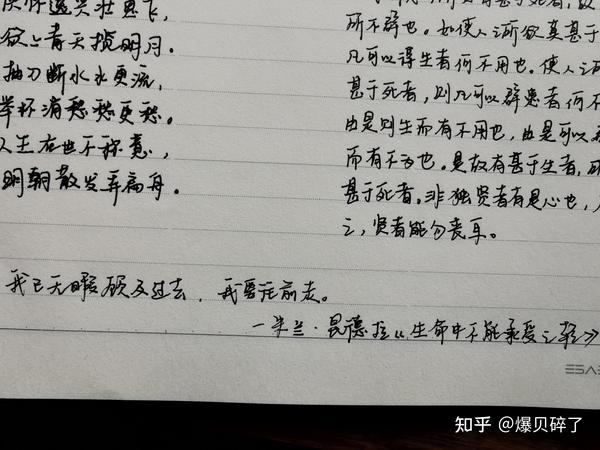 俱怀逸兴壮思飞,
欲上青天揽明月.
抽刀断水水更流,
举杯消愁愁更愁。
人生在世不称意,
明朝散发弄扁舟.
有甚于死者,故
所不辟也。如使人之所欲莫甚于
凡可以得生者何不用也。使人之所
甚于死者,则凡可以辟患者何不
由是则生而有不用也,由是可以
而有不为也。是故有甚于生者,所
甚于死者。非独贤者有是心也,
之,贤者能勿丧耳。
我已无暇顾及过去,我要往前走。
—米兰·昆德拉《生命中不能承受之轻》
知乎 @爆贝碎了